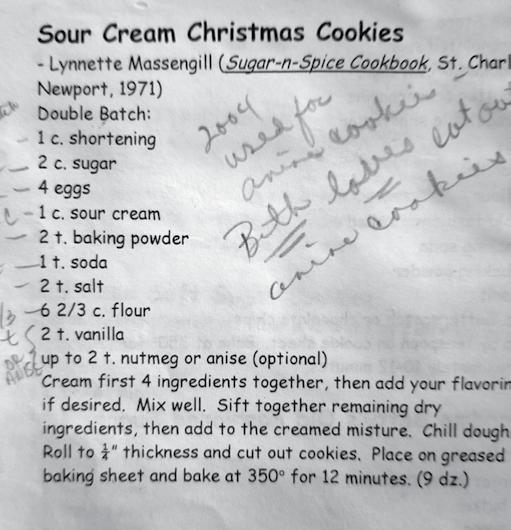 Sour Cream Christmas Cookies
- Lynnette Massengill (Sugar-n-Spice Cookbook, St. Charl
Newport, 1971)
Double Batch:
1 c. shortening
2 c. sugar
4 eggs
1 c. sour cream
2 t. baking powder
1 t. soda
2 t. salt
6 2/3 c. flour
2 t. vanilla
up to 2 t. nutmeg or anise (optional)
Cream first 4 ingredients together, then add your flavorin
if desired. Mix well. Sift together remaining dry
ingredients, then add to the creamed misture. Chill dough
Roll to ¼" thickness and cut out cookies. Place on greased
baking sheet and bake at 350° for 12 minutes. (9 dz.)
2004
used for
anise cookies
Both cut out
anise cookies
OR
ANISE